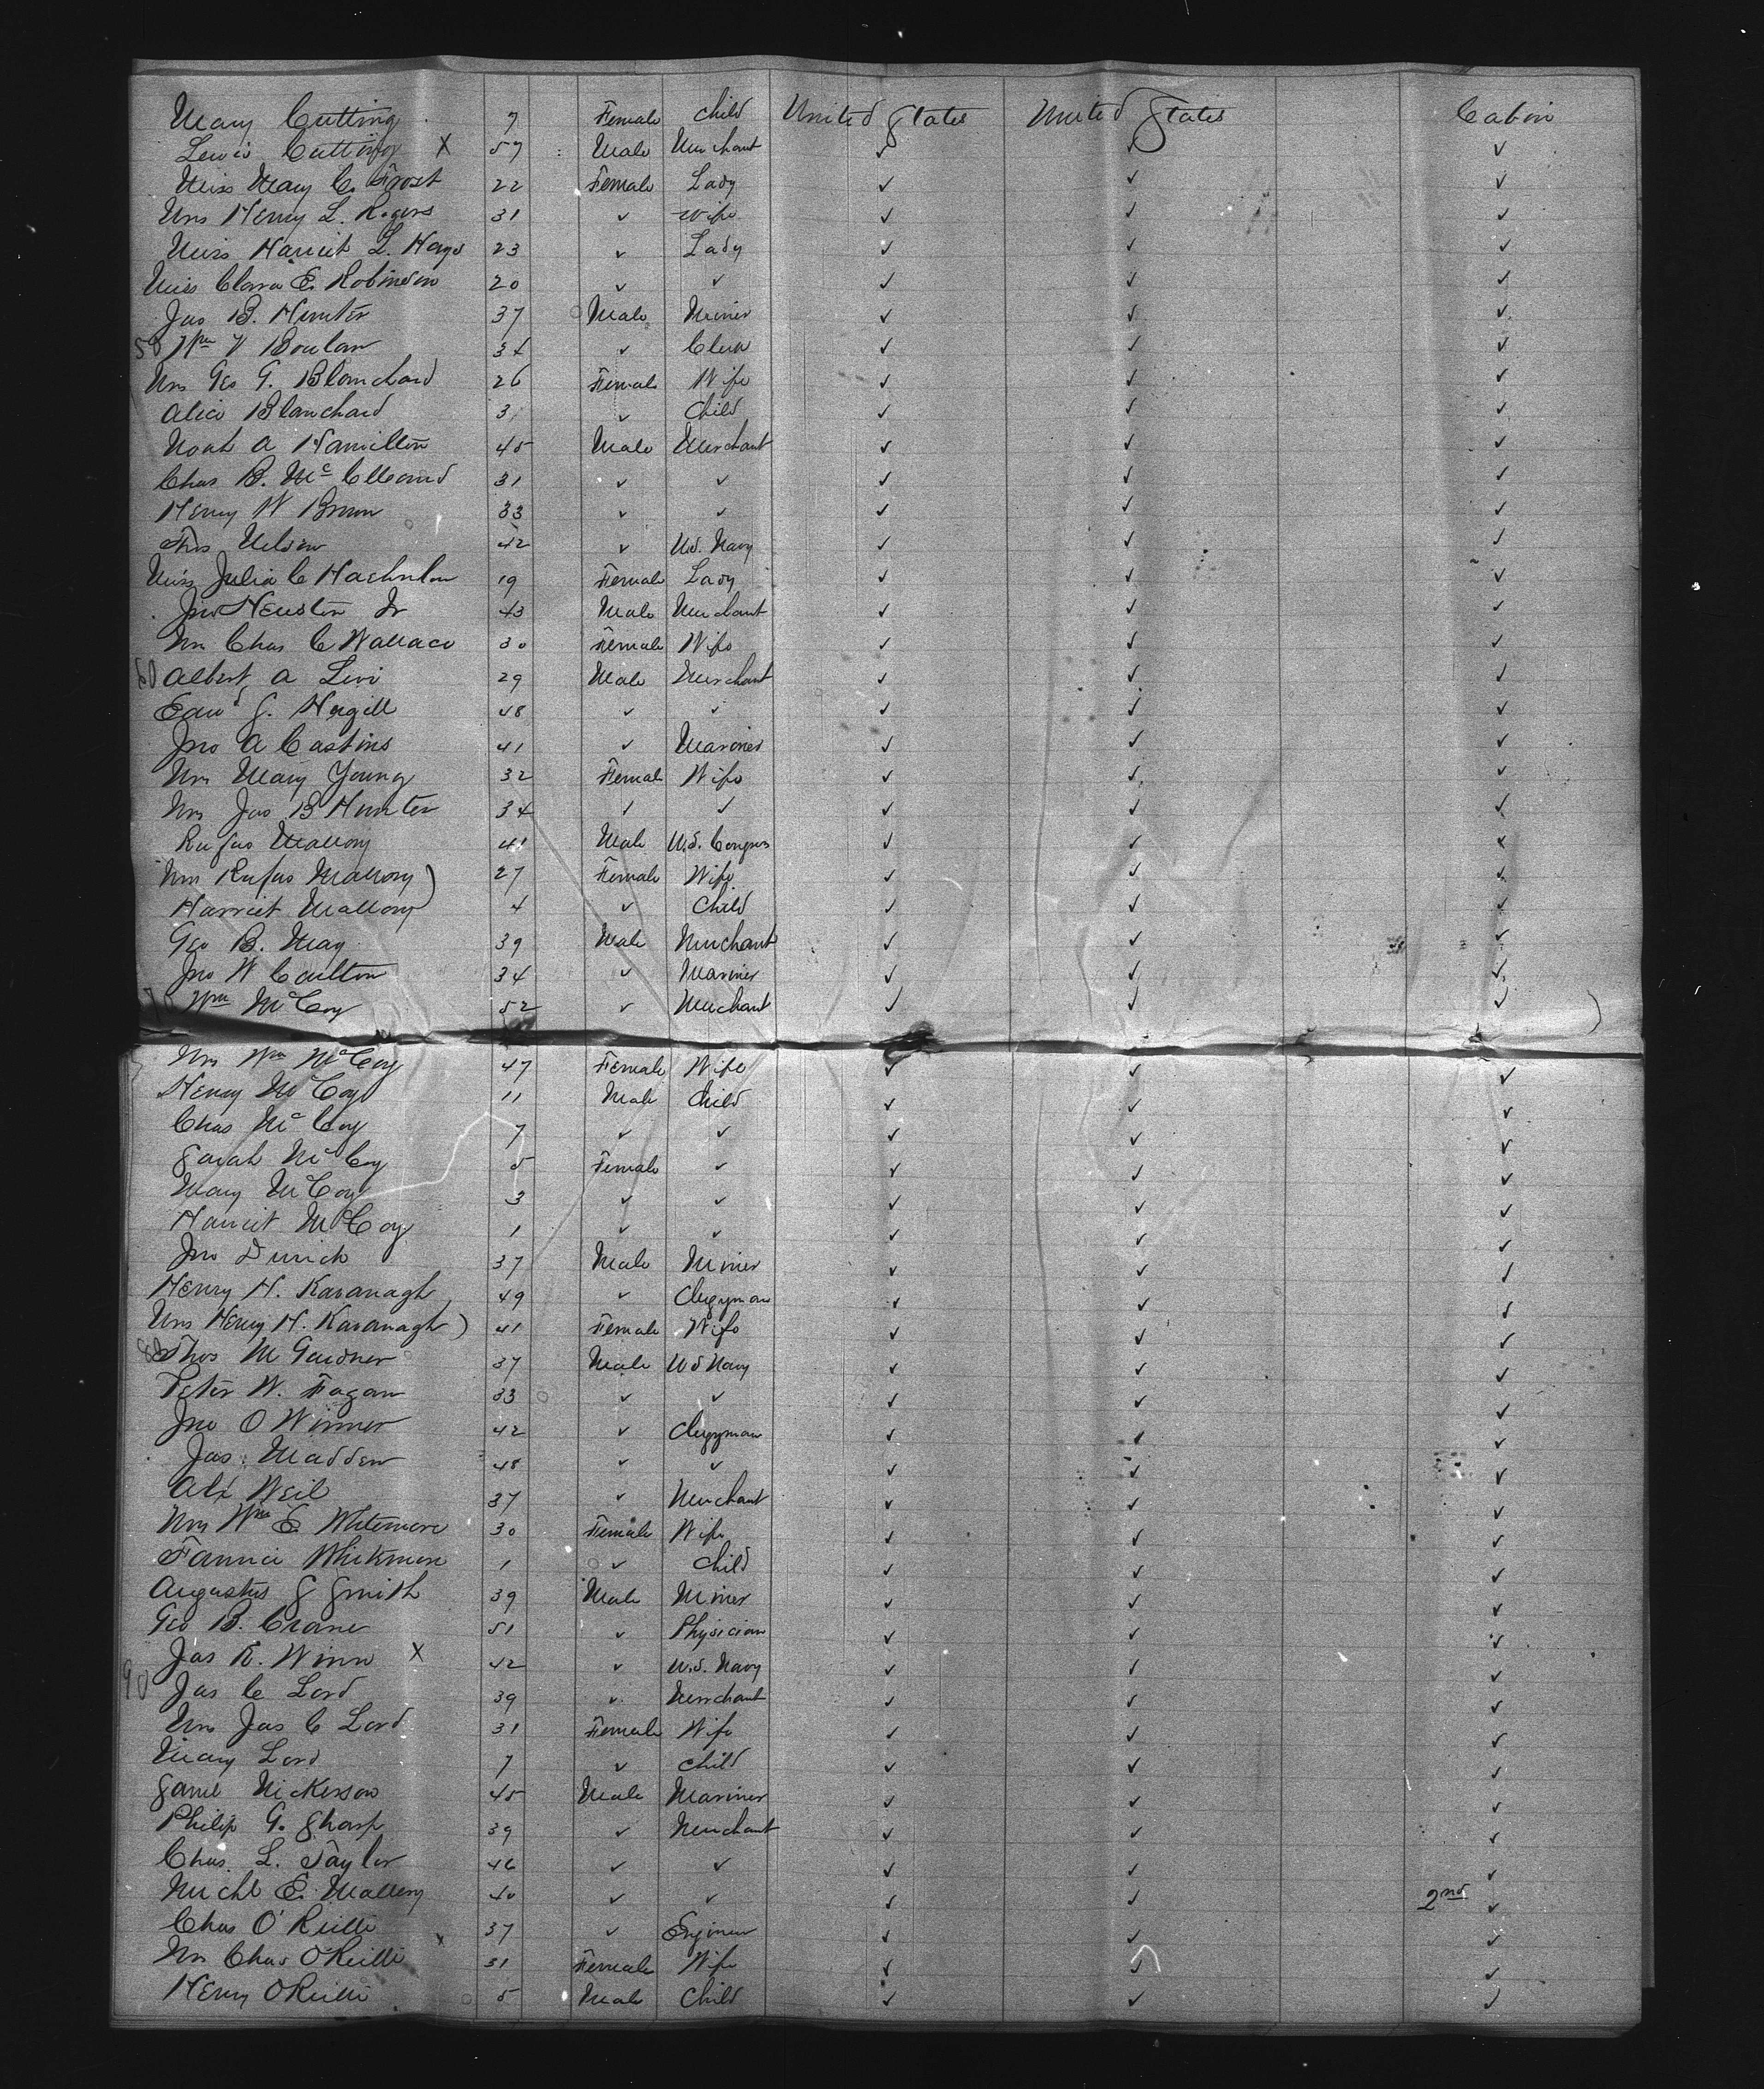 Mary Cutting 7 Female Child United States United States Cabin
Lewis Cutting X 57 Male Merchant ✓ ✓ ✓
Miss Mary C. Frost 22 Female Lady ✓ ✓ ✓
Mrs Henry L. Rogers 31 ✓ Wife ✓ ✓ ✓
Miss Harriet L. Hays 23 ✓ Lady ✓ ✓ ✓
Miss Clara E. Robinson 20 ✓ ✓ ✓ ✓ ✓
Jas B. Hunter 37 Male Miner ✓ ✓ ✓
50 Wm V 34 ✓ Clerk ✓ ✓ ✓
Mrs Geo G. Blanchard 26 Female Wife ✓ ✓ ✓
Alice Blanchard 3 ✓ Child ✓ ✓ ✓
Noah A Hamilton 45 Male Merchant ✓ ✓ ✓
Chas B. 31 ✓ ✓ ✓ ✓ ✓
Henry W Brown 33 ✓ ✓ ✓ ✓ ✓
Thos Nelson 42 ✓ U.S. Navy ✓ ✓ ✓
Miss Julia C 19 Female Lady ✓ ✓ ✓
Jno Jr 43 Male Merchant ✓ ✓ ✓
Mrs Chas C Wallace 30 Female Wife ✓ ✓ ✓
60 Albert A Levi 29 Male Merchant ✓ ✓ ✓
Edwd G. 48 ✓ ✓ ✓ ✓ ✓
Jno A Castins 41 ✓ Mariner ✓ ✓ ✓
Mrs Mary Young 32 Female Wife ✓ ✓ ✓
Mrs Jas B Hunter 34 ✓ ✓ ✓ ✓ ✓
Rufus Mallory 41 Male U.S. Congress ✓ ✓ ✓
Mrs Rufus Mallory ) 27 Female Wife ✓ ✓ ✓
Harriet Mallory 4 ✓ Child ✓ ✓ ✓
Geo B. May 39 Male Merchant ✓ ✓ ✓
Jno W Carlton 34 ✓ Mariner ✓ ✓ ✓
70 Wm McCoy 52 ✓ Merchant ✓ ✓ ✓
Mrs Wm McCoy 47 Female Wife ✓ ✓ ✓
Henry McCoy 11 Male Child ✓ ✓ ✓
Chas McCoy 7 ✓ ✓ ✓ ✓ ✓
Sarah McCoy 5 Female ✓ ✓ ✓ ✓
Mary McCoy 3 ✓ ✓ ✓ ✓ ✓
Harriet McCoy 1 ✓ ✓ ✓ ✓ ✓
Jno 37 Male Miner ✓ ✓ ✓
Henry H. Kavanagh 49 ✓ Clergyman ✓ ✓ ✓
Mrs Henry H. Kavanagh ) 41 Female Wife ✓ ✓ ✓
80 Thos M Gardner 37 Male U S Navy ✓ ✓ ✓
Peter W. Fagan 33 ✓ ✓ ✓ ✓ ✓
Jno O Winner 42 ✓ Clergyman ✓ ✓ ✓
Jas Madden 48 ✓ ✓ ✓ ✓ ✓
Alx Weil 37 ✓ Merchant ✓ ✓ ✓
Mrs Wm E. Whitemore 30 Female Wife ✓ ✓ ✓
Fannie Whitemore 1 ✓ Child ✓ ✓ ✓
Augustus S Smith 39 Male Miner ✓ ✓ ✓
Geo B. Crane 51 ✓ Physician ✓ ✓ ✓
Jas R. Winn X 42 ✓ U.S. Navy ✓ ✓ ✓
90 Jas C Lord 39 ✓ Merchant ✓ ✓ ✓
Mrs Jas C Lord 31 Female Wife ✓ ✓ ✓
Mary Lord 7 ✓ Child ✓ ✓ ✓
Saml Nickerson 45 Male Mariner ✓ ✓ ✓
Philip G. Sharp 39 ✓ Merchant ✓ ✓ ✓
Chas. L. Taylor 46 ✓ ✓ ✓ ✓ ✓
Michl E. Mallory 40 ✓ ✓ ✓ ✓ 2nd ✓
Chas O'Reilli 37 ✓ Engineer ✓ ✓ ✓
Mrs Chas O'Reilli x 31 Female Wife ✓ ✓ ✓
Henry O'Reilli 5 Male Child ✓ ✓ ✓